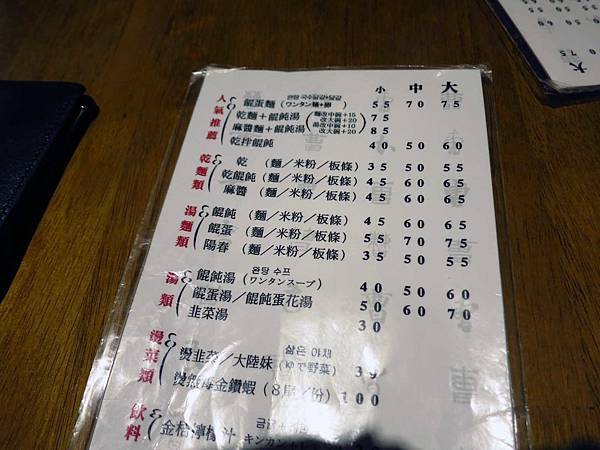 小 中 大
人氣推薦
완탕 국수달걀+달걀
餛蛋麵(ワンタン麺+卵) 55 70 75
乾麵+餛飩湯 麵改中碗+15 改大碗+20 75
麻醬麵+餛飩湯 湯改中碗+10 改大碗+20 85
乾拌餛飩 40 50 60
乾麵類
乾 (麵/米粉/板條) 35 50 55
乾餛飩(麵/米粉/板條) 45 60 65
麻醬 (麵/米粉/板條) 45 60 65
湯麵類
餛飩(麵/米粉/板條) 45 60 65
餛蛋(麵/米粉/板條) 55 70 75
陽春(麵/米粉/板條) 35 50 55
湯類
완탕 수프
餛飩湯(ワンタンスープ) 40 50 60
餛蛋湯/餛飩蛋花湯 50 60 70
韭菜湯 30
燙菜類
燙韭菜/大陸妹(ゆで野菜) 39
金鑽蝦(8尾/份) 100
飲料
金桔檸檬汁 キンカン
大